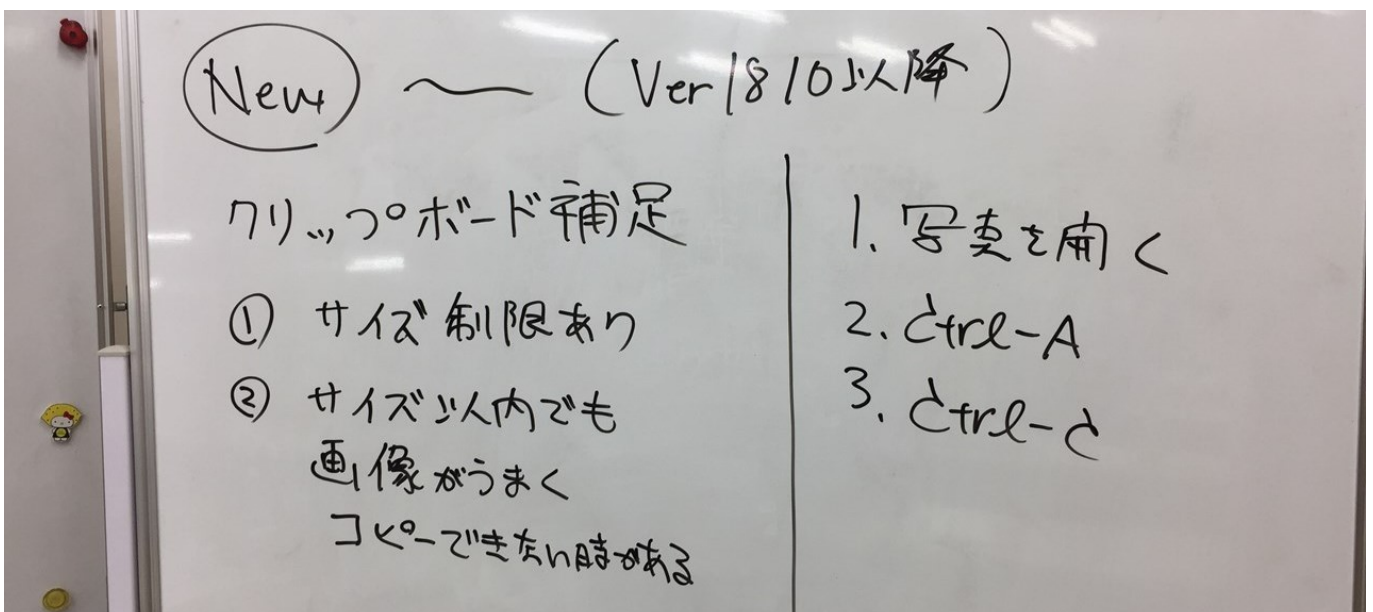 New 〜 (Ver1810以降)
クリップボード補足
① サイズ制限あり
② サイズ以内でも
画像がうまく
コピーできない時がある
1. 写真を開く
2. Ctrl-A
3. Ctrl-C